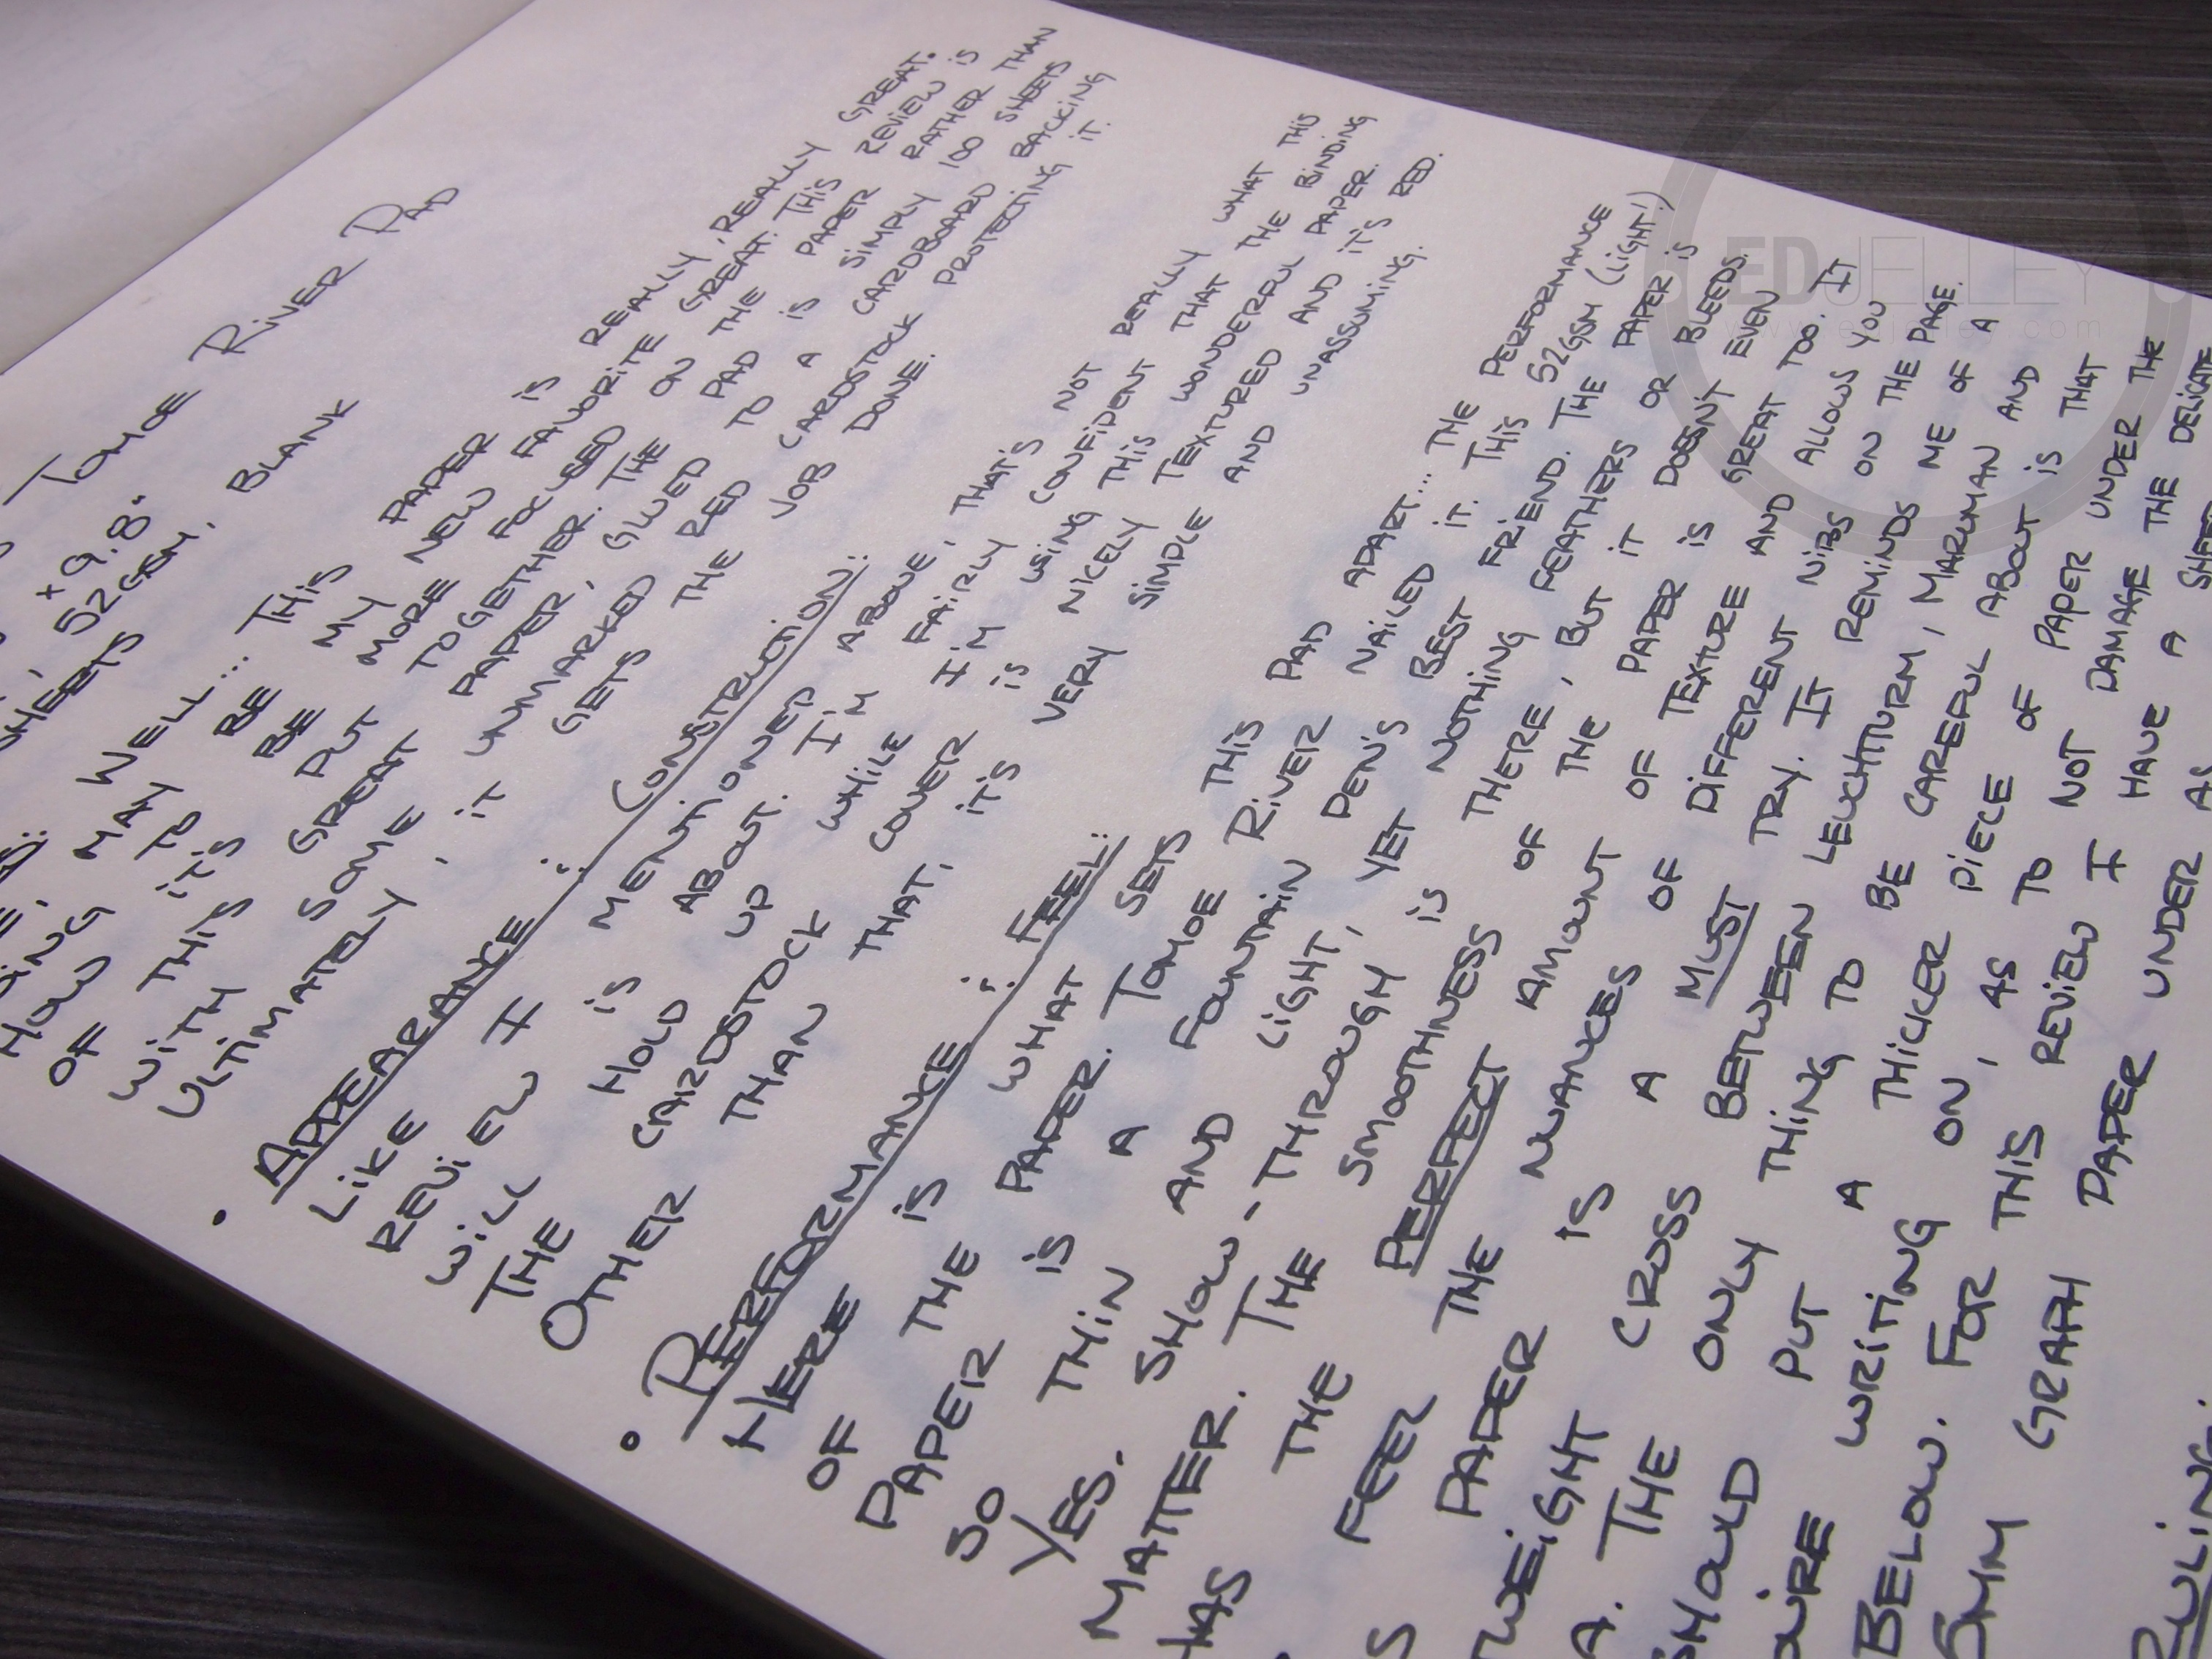 TOMOE RIVER PAD
x 9.8"
52GSM, BLANK
SHEETS
WELL... THIS PAPER IS REALLY, REALLY GREAT.
MAY BE MY NEW FAVORITE GREAT. THIS REVIEW IS
TO BE MORE FOCUSED ON THE PAPER RATHER THAN
HOW IT'S PUT TOGETHER. THE PAD IS SIMPLY 100 SHEETS
OF THIS GREAT PAPER, GLUED TO A CARDBOARD BACKING
WITH SOME UNMARKED RED CARDSTOCK PROTECTING IT.
ULTIMATELY, IT GETS THE JOB DONE.
• APPEARANCE & CONSTRUCTION:
LIKE I MENTIONED ABOVE, THAT'S NOT REALLY WHAT THIS
REVIEW IS ABOUT. I'M FAIRLY CONFIDENT THAT THE BINDING
WILL HOLD UP WHILE I'M USING THIS WONDERFUL PAPER.
THE CARDSTOCK COVER IS NICELY TEXTURED AND IT'S RED.
OTHER THAN THAT, IT'S VERY SIMPLE AND UNASSUMING.
• PERFORMANCE & FEEL:
HERE IS WHAT SETS THIS PAD APART... THE PERFORMANCE
OF THE PAPER. TOMOE RIVER NAILED IT. THIS 52GSM (LIGHT!)
PAPER IS A FOUNTAIN PEN'S BEST FRIEND. THE PAPER IS
SO THIN AND LIGHT, YET NOTHING FEATHERS OR BLEEDS.
YES, SHOW-THROUGH IS THERE, BUT IT DOESN'T EVEN
MATTER. THE SMOOTHNESS OF THE PAPER IS GREAT TOO. IT
HAS THE PERFECT AMOUNT OF TEXTURE AND ALLOWS YOU
FEEL THE NUANCES OF DIFFERENT NIBS ON THE PAGE.
PAPER IS A MUST TRY. IT REMINDS ME OF A
CROSS BETWEEN LEUCHTTURM, MARUMAN AND
A. THE ONLY THING TO BE CAREFUL ABOUT IS THAT
SHOULD PUT A THICKER PIECE OF PAPER UNDER THE
WRITING ON, AS TO NOT DAMAGE THE DELICATE
BELOW. FOR THIS REVIEW I HAVE A SHEET
5MM GRAPH PAPER UNDER AS
RULING.
EDJELLEY
www.edjelley.com